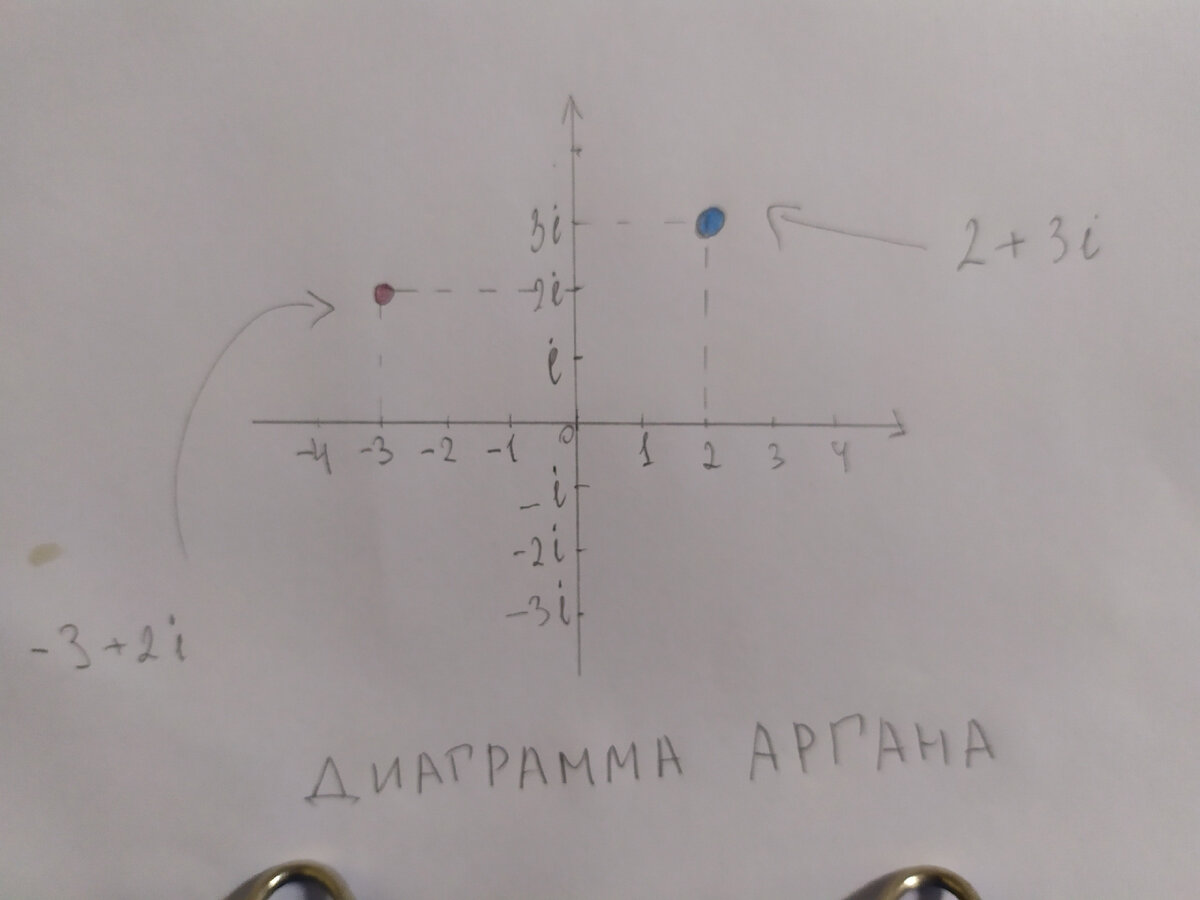 3i
2 + 3i
2i
i
0
-4 -3 -2 -1 1 2 3 4
-i
-2i
-3i
-3+2i
ДИАГРАММА АРГАНА